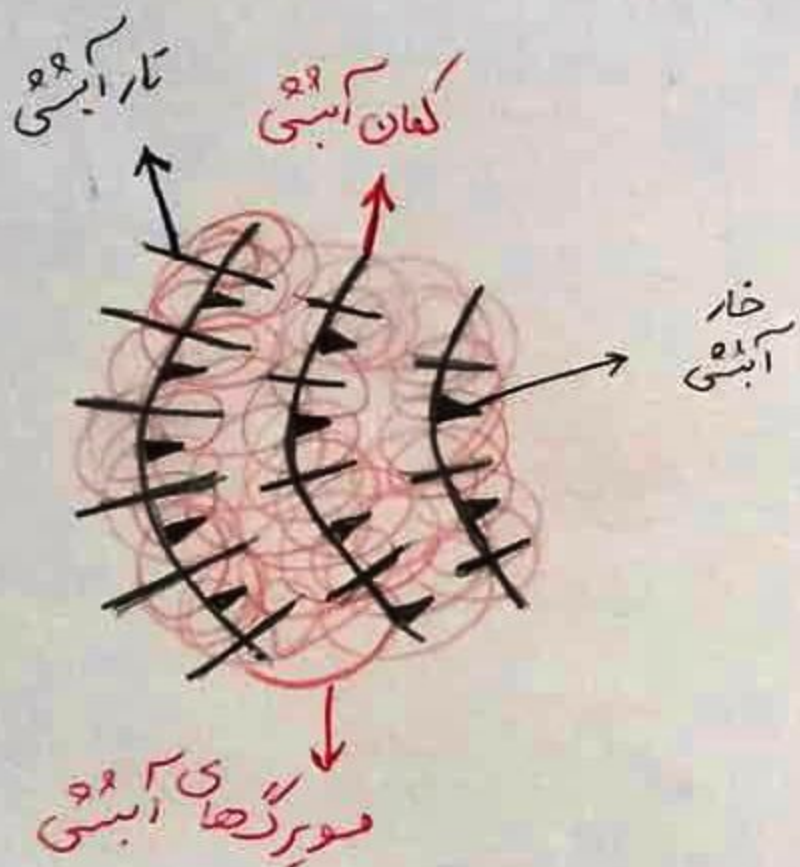 تار آبششی
کمان آبششی
خار
آبششی
مویرگ‌های آبششی